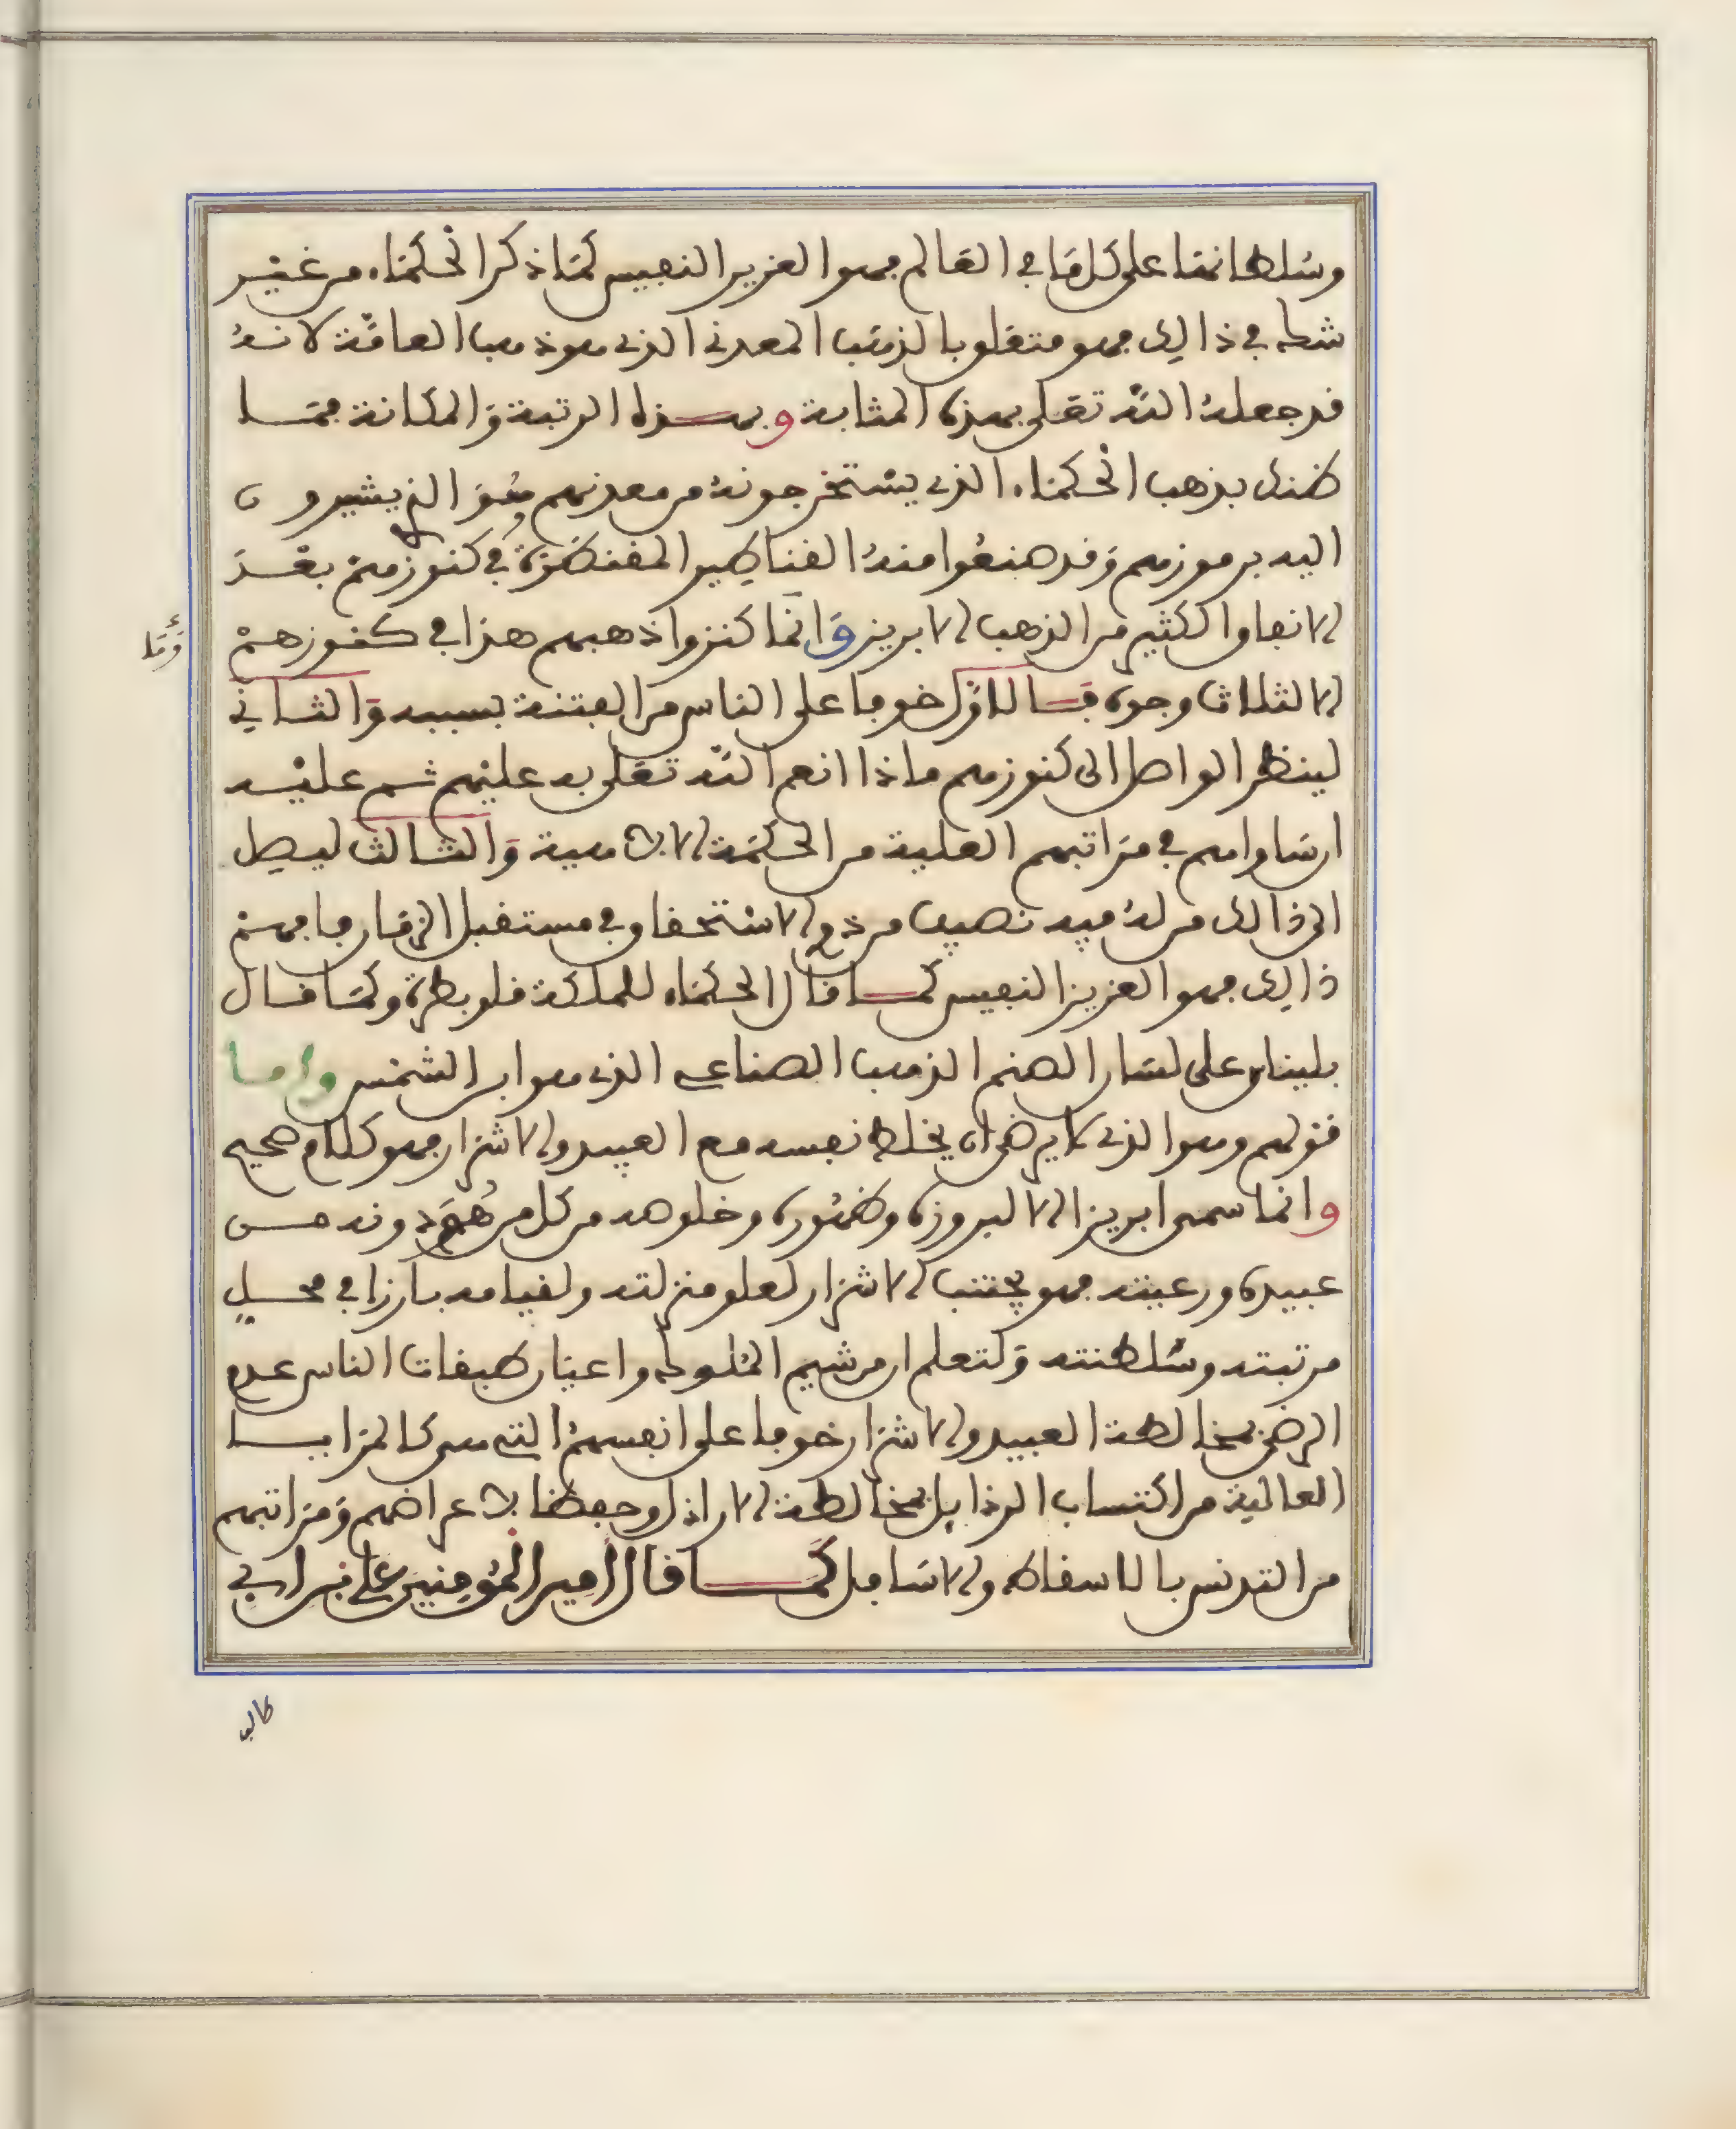 وسلطاننا على كل ما في العالم فهو العزيز النفيس كما ذكر الحكماء من غير
شك في ذالك فهو متعلق بالذهب المعدني الذي هو ذهب العامة لانه
قد جعله الله تعلى بهذه المثابة وبهذه الرتبة والمكانة فما
ظنك بذهب الحكماء الذي يستخرجونه من معدنهم هو الذي يشيرون
اليه برموزهم وقد صنعوا منه القناطير المقنطرة في كنوزهم بعد
الانفاق الكثير من الذهب الابريز وانما كنزوا ذهبهم هذا في كنوزهم
الا لثلاث وجوه فالاول خوفا على الناس من الفتنة بسببه والثاني
لينظر الواصل الى كنوزهم ماذا انعم الله تعلى به عليهم ثم عليه
ان ساواهم في مراتبهم العلية من الحكمة الالاهية والثالث ليصل
الى ذالك من له فيه نصيب من ذوي الاستحقاق في مستقبل الزمان فافهم
ذالك فهو العزيز النفيس كما قال الحكماء للملكة قلوبطرة وكما قال
بليناس على لسان الصنم الذهب الصناعي الذي هو ابن الشمس واما
قولهم وهو الذي لا يرضى ان يخلط نفسه مع العبيد والاشرار فهو كلام صحيح
وانما سمي ابريزا الا لبروزه وظهوره وخلوصه من كل من هو دونه من
عبيده ورعيته فهو يجتنب الاشرار لعلو منزلته ولقيامه بارزا في محل
مرتبته وسلطنته ولتعلم ان من شيم الملوك واعيان طبقات الناس عدم
الرضى بمخالطة العبيد والاشرار خوفا على انفسهم التي هي كالمرايا
العالية من اكتساب الرذايل بمخالطة الاراذل وحفظا لاعراضهم ومراتبهم
من التدنس بالاسقاط والاسافل كما قال امير المؤمنين علي بن ابي
وما
طالب